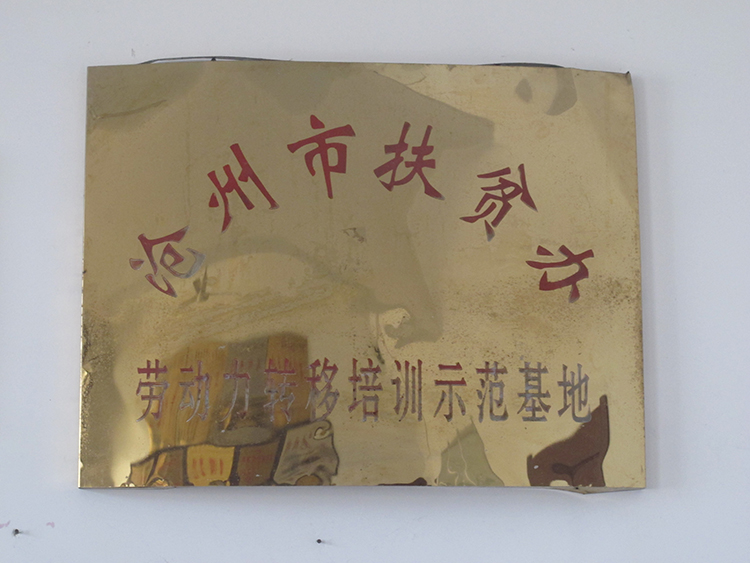 沧州市扶贫办
劳动力转移培训示范基地